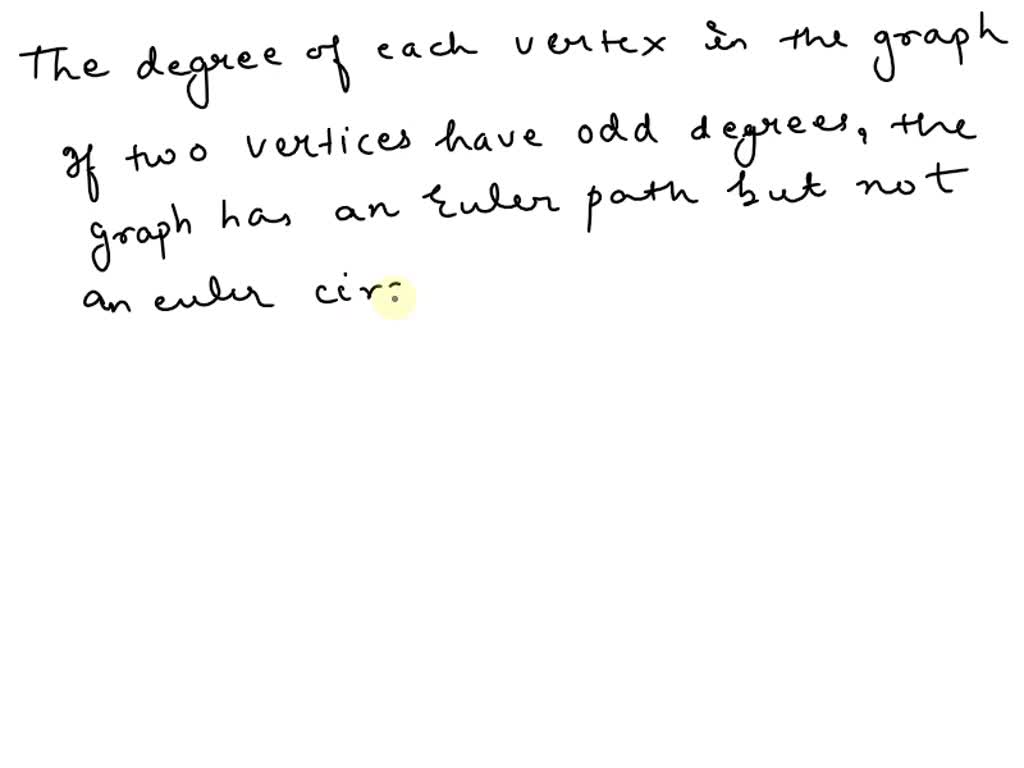 The degree of each vertex in the graph
If two vertices have odd degrees, the
graph has an Euler path but not
an euler cir